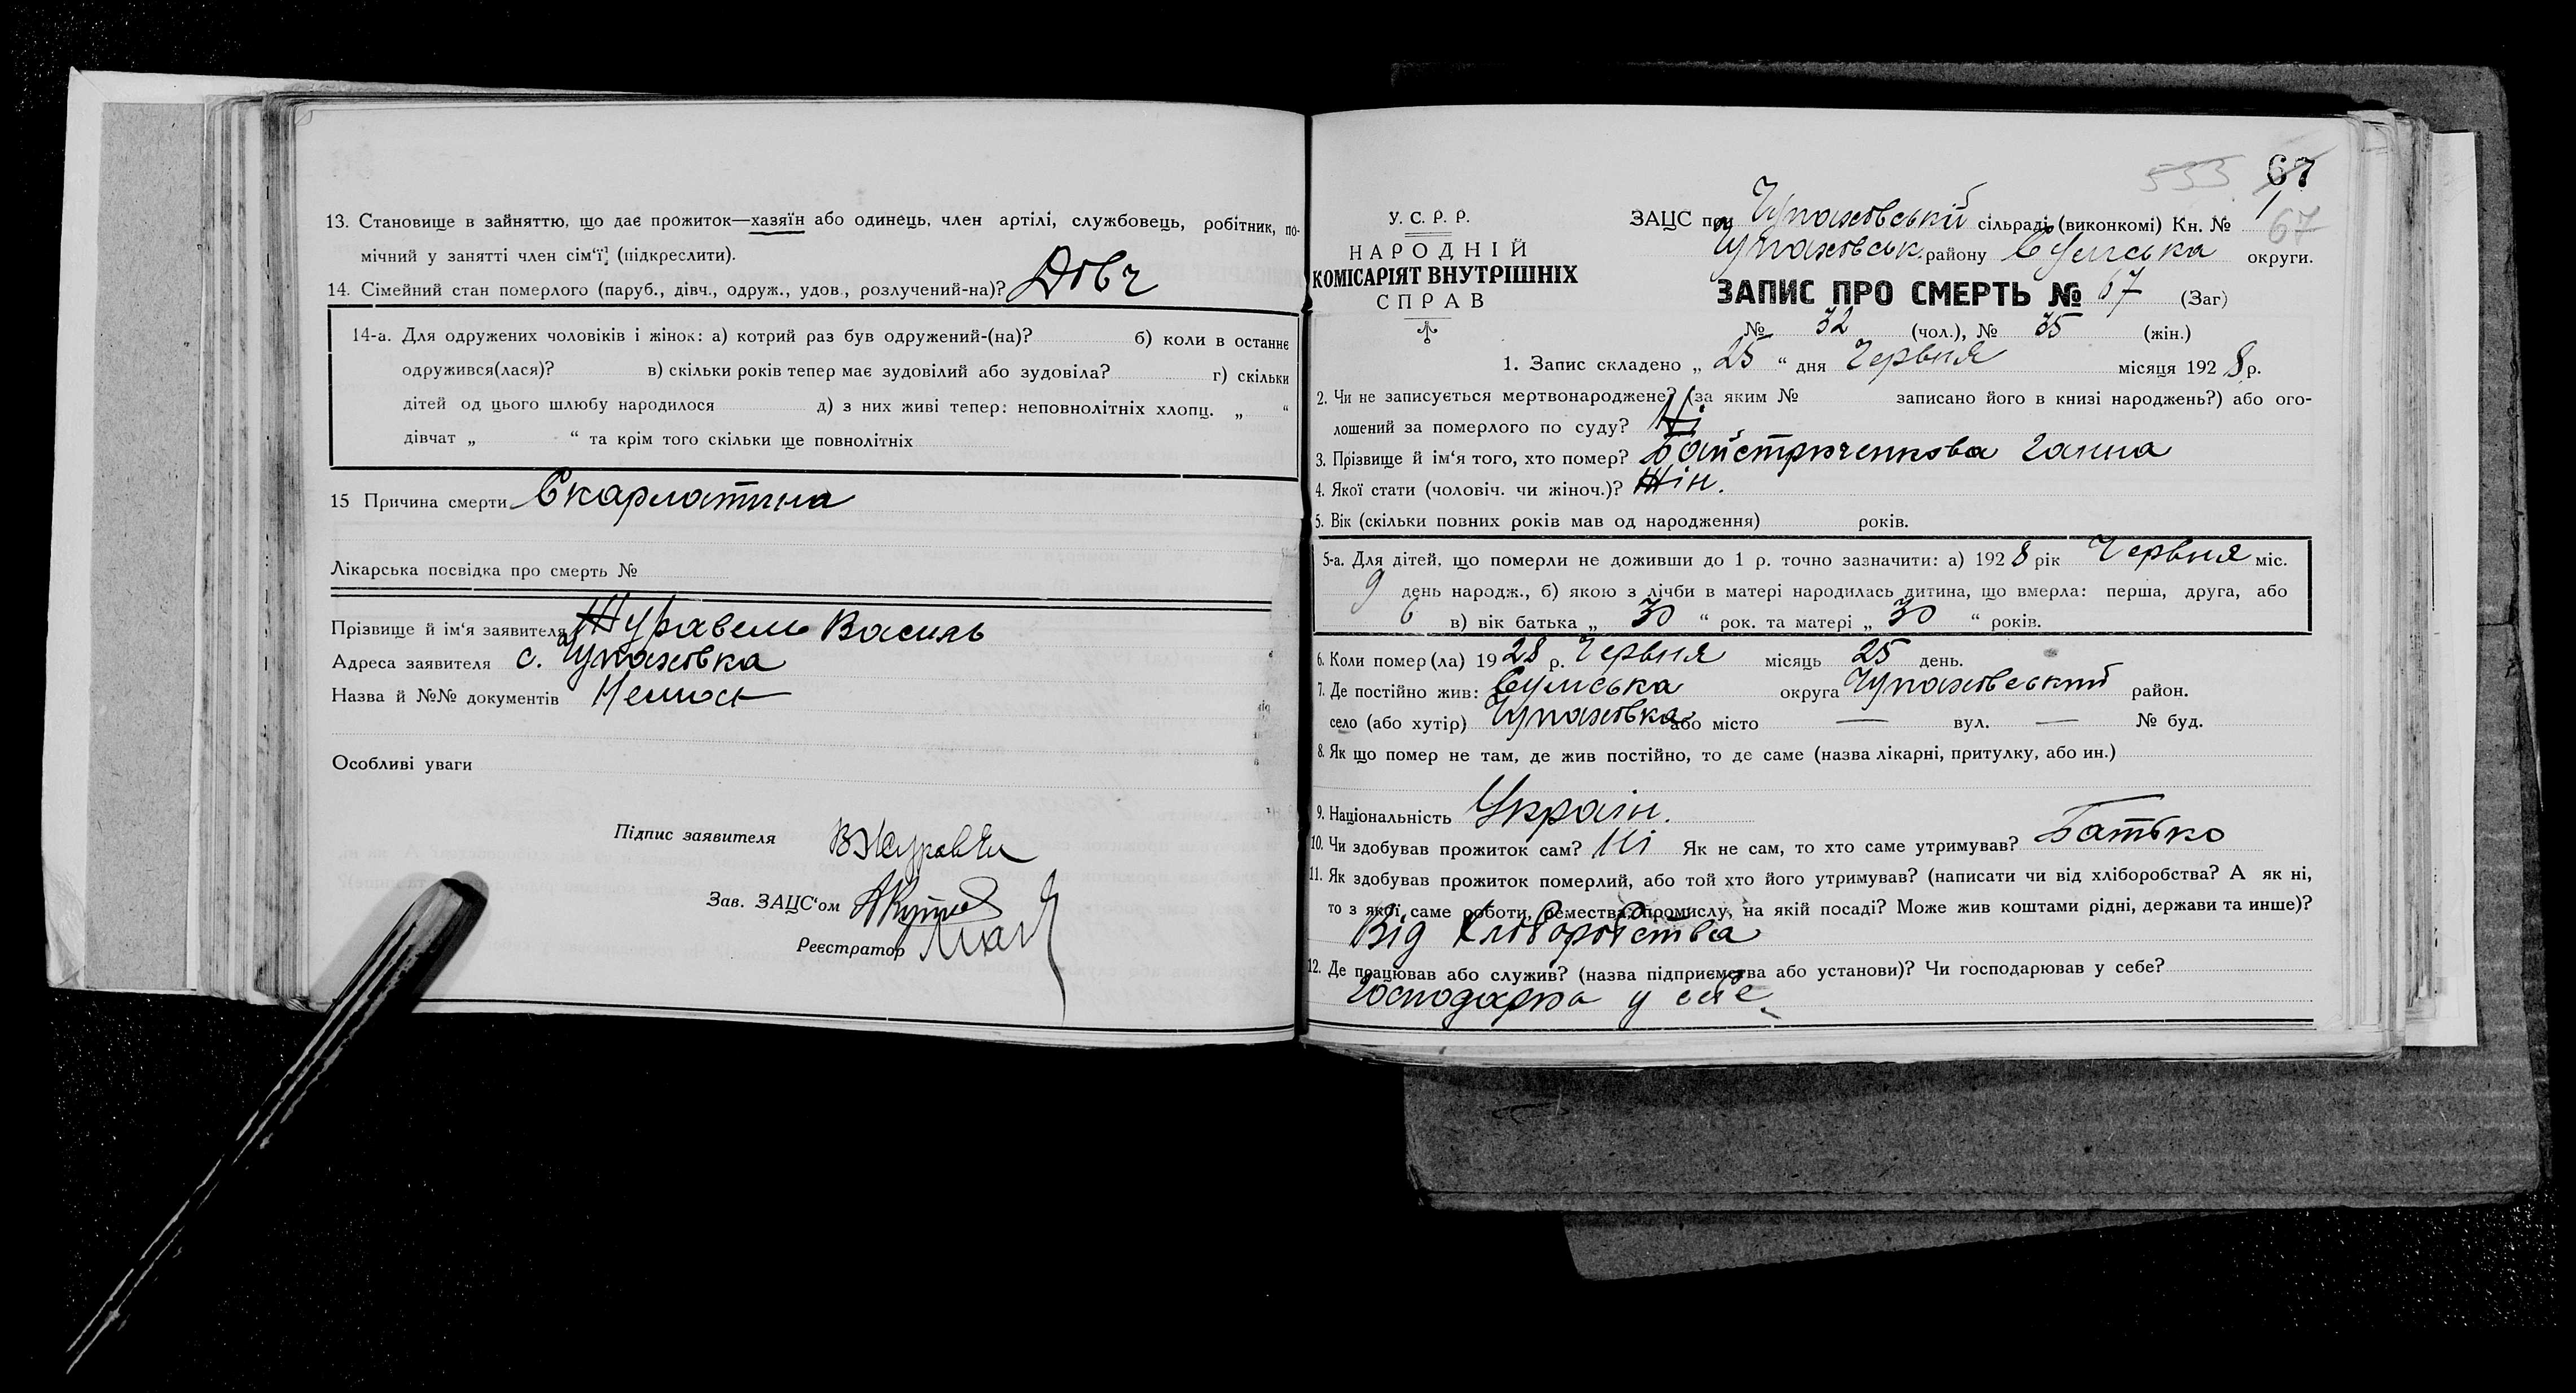 13. Становище в зайняттю, що дає прожиток—хазяїн або одинець, член артілі, службовець, робітник, по-
мічний у занятті член сім'ї, (підкреслити).
14. Сімейний стан померлого (паруб., дівч., одруж., удов., розлучений-на)? Дівч
14-а. Для одружених чоловіків і жінок: а) котрий раз був одружений-(на)? б) коли в останнє
одружився(лася)? в) скільки років тепер має зудовілий або зудовіла? г) скільки
дітей од цього шлюбу народилося д) з них живі тепер: неповнолітніх хлопц. „ “
дівчат „ “ та крім того скільки ще повнолітніх
15 Причина смерти Скарлатина
Лікарська посвідка про смерть №
Прізвище й ім'я заявителя Журавель Василь
Адреса заявителя с. Чупаховка
Назва й №№ документів
Особливі уваги
Підпис заявителя ВЖуравель
Зав. ЗАЦС'ом
Реєстратор
533 67
У. С. Р. Р.
НАРОДНІЙ
КОМІСАРІЯТ ВНУТРІШНІХ
СПРАВ
ЗАЦС при Чупаховській сільраді (виконкомі) Кн. № 1 67
Чупаховськ. району Сумська округи.
ЗАПИС ПРО СМЕРТЬ № 67 (Заг)
№ 32 (чол.), № 35 (жін.)
1. Запис складено „ 25 “ дня Червня місяця 1928 р.
2. Чи не записується мертвонароджене? (за яким № записано його в книзі народжень?) або ого-
лошений за померлого по суду? Ні
3. Прізвище й ім'я того, хто помер? Байстрюченкова Ганна
4. Якої стати (чоловіч. чи жіноч.)? Жін.
5. Вік (скільки повних років мав од народження) років.
5-а. Для дітей, що померли не доживши до 1 р. точно зазначити: а) 1928 рік Червня міс.
9 день народж., б) якою з лічби в матері народилась дитина, що вмерла: перша, друга, або
6 в) вік батька „ 30 “ рок. та матері „ 30 “ років.
6. Коли помер (ла) 1928 р. Червня місяць 25 день.
7. Де постійно жив: Сумська округа Чупаховський район.
село (або хутір) Чупаховка або місто — вул. — № буд.
8. Як що помер не там, де жив постійно, то де саме (назва лікарні, притулку, або ин.)
9. Національність Україн.
10. Чи здобував прожиток сам? Ні Як не сам, то хто саме утримував? Батько
11. Як здобував прожиток померлий, або той хто його утримував? (написати чи від хліборобства? А як ні,
то з якої саме роботи, ремества, промислу, на якій посаді? Може жив коштами рідні, держави та инше)?
Від Хліборобства
12. Де працював або служив? (назва підприємства або установи)? Чи господарював у себе?
Господарка у себе